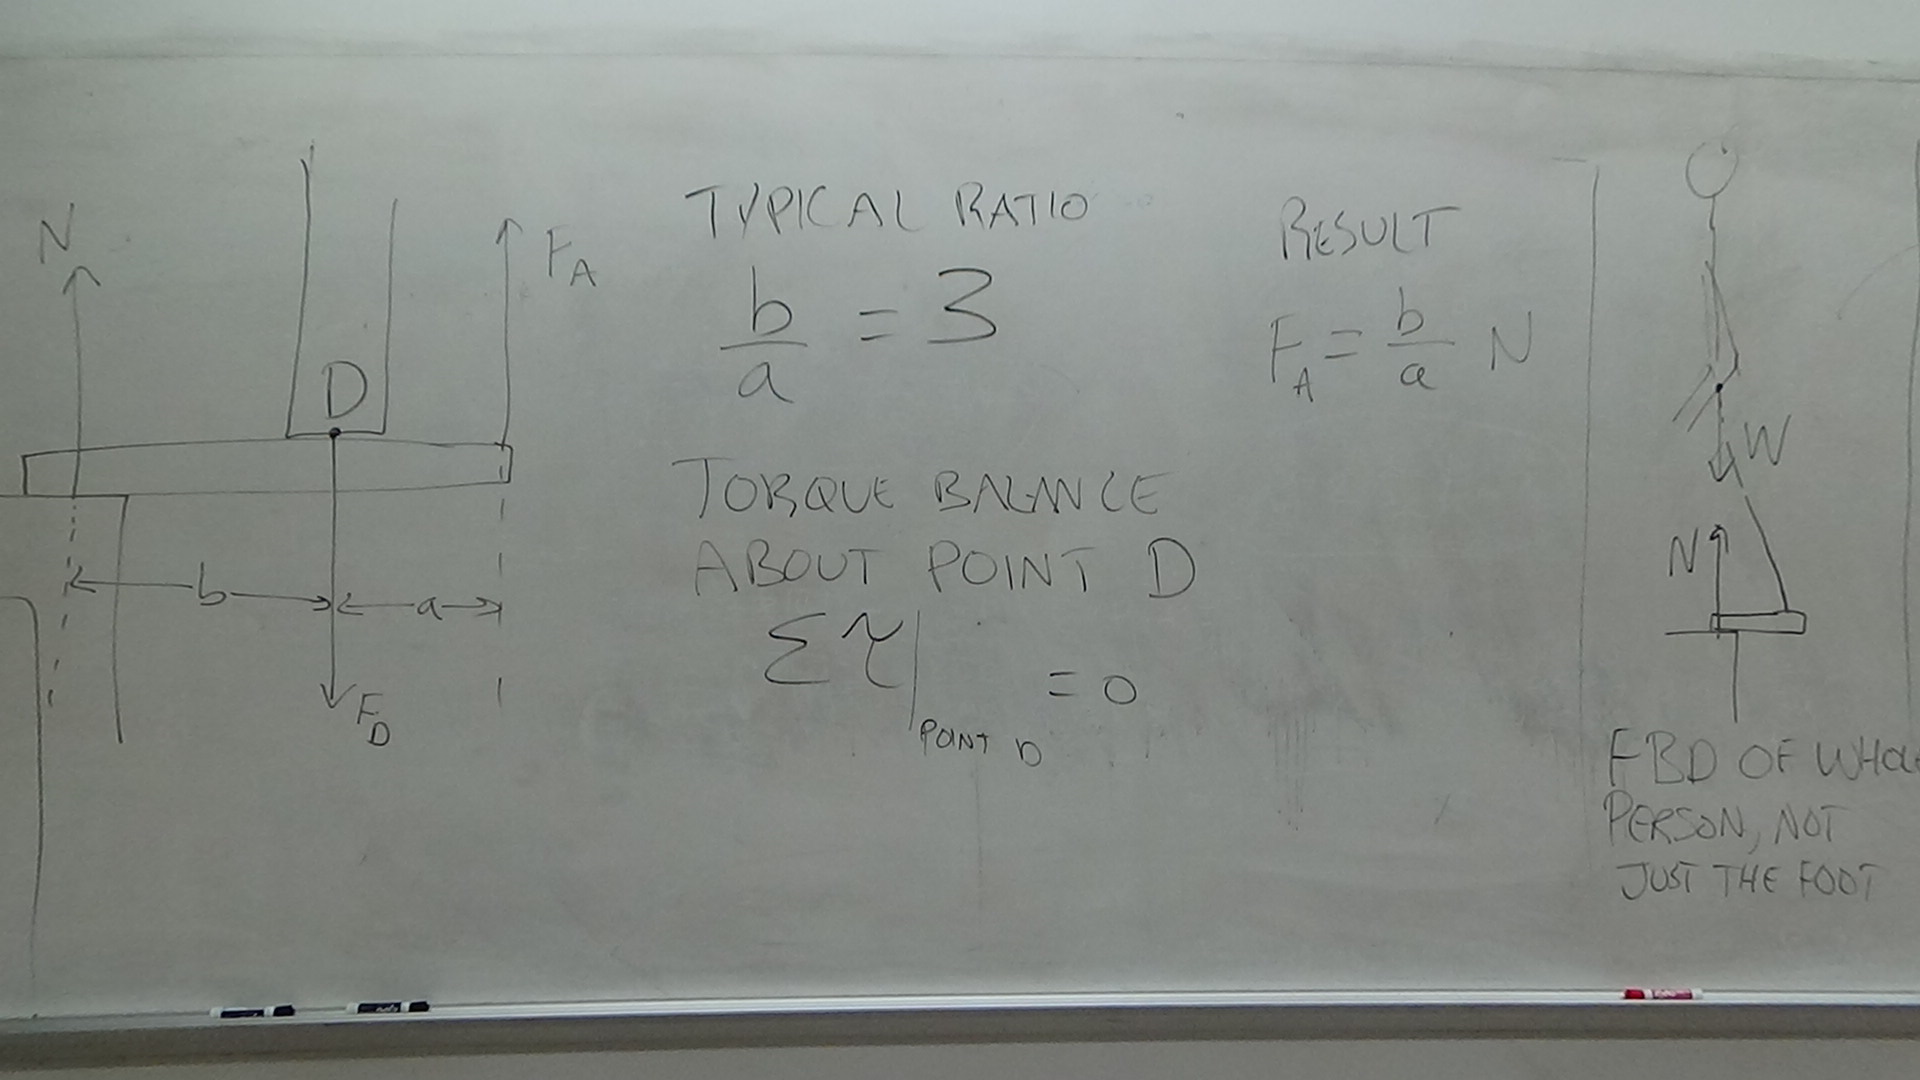 N
F_A
D
b
a
F_D
TYPICAL RATIO
b/a = 3
TORQUE BALANCE
ABOUT POINT D
Στ|POINT D = 0
RESULT
F_A = b/a N
W
N
FBD OF WHOLE
PERSON, NOT
JUST THE FOOT